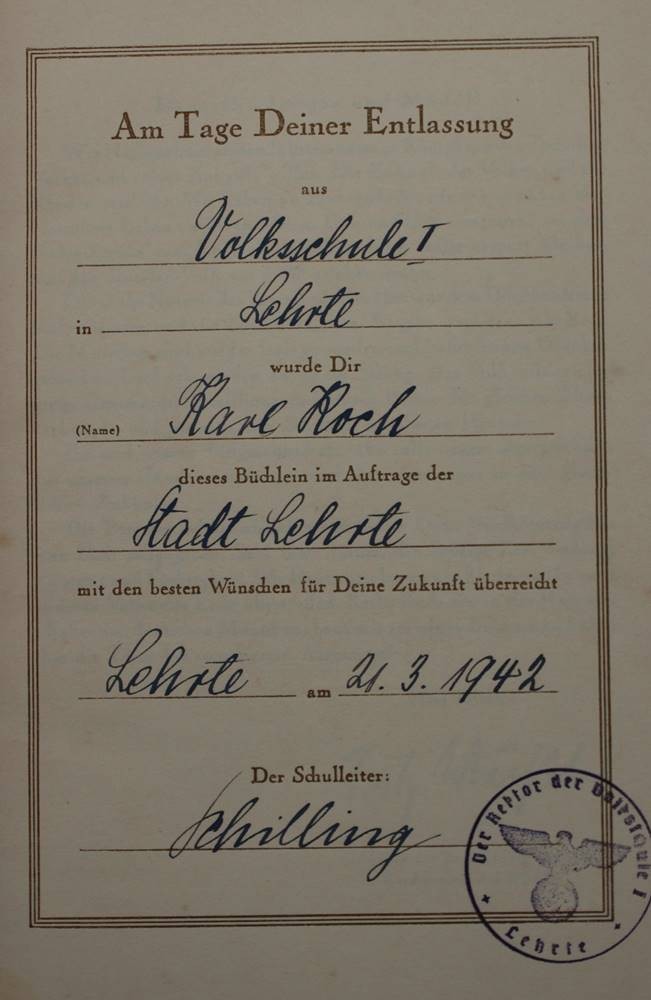 Am Tage Deiner Entlassung
aus
Volksschule I
in Lehrte
wurde Dir
(Name) Karl Koch
dieses Büchlein im Auftrage der
Stadt Lehrte
mit den besten Wünschen für Deine Zukunft überreicht
Lehrte am 21. 3. 1942
Der Schulleiter:
Schilling
Der Rektor der Volksschule I
Lehrte